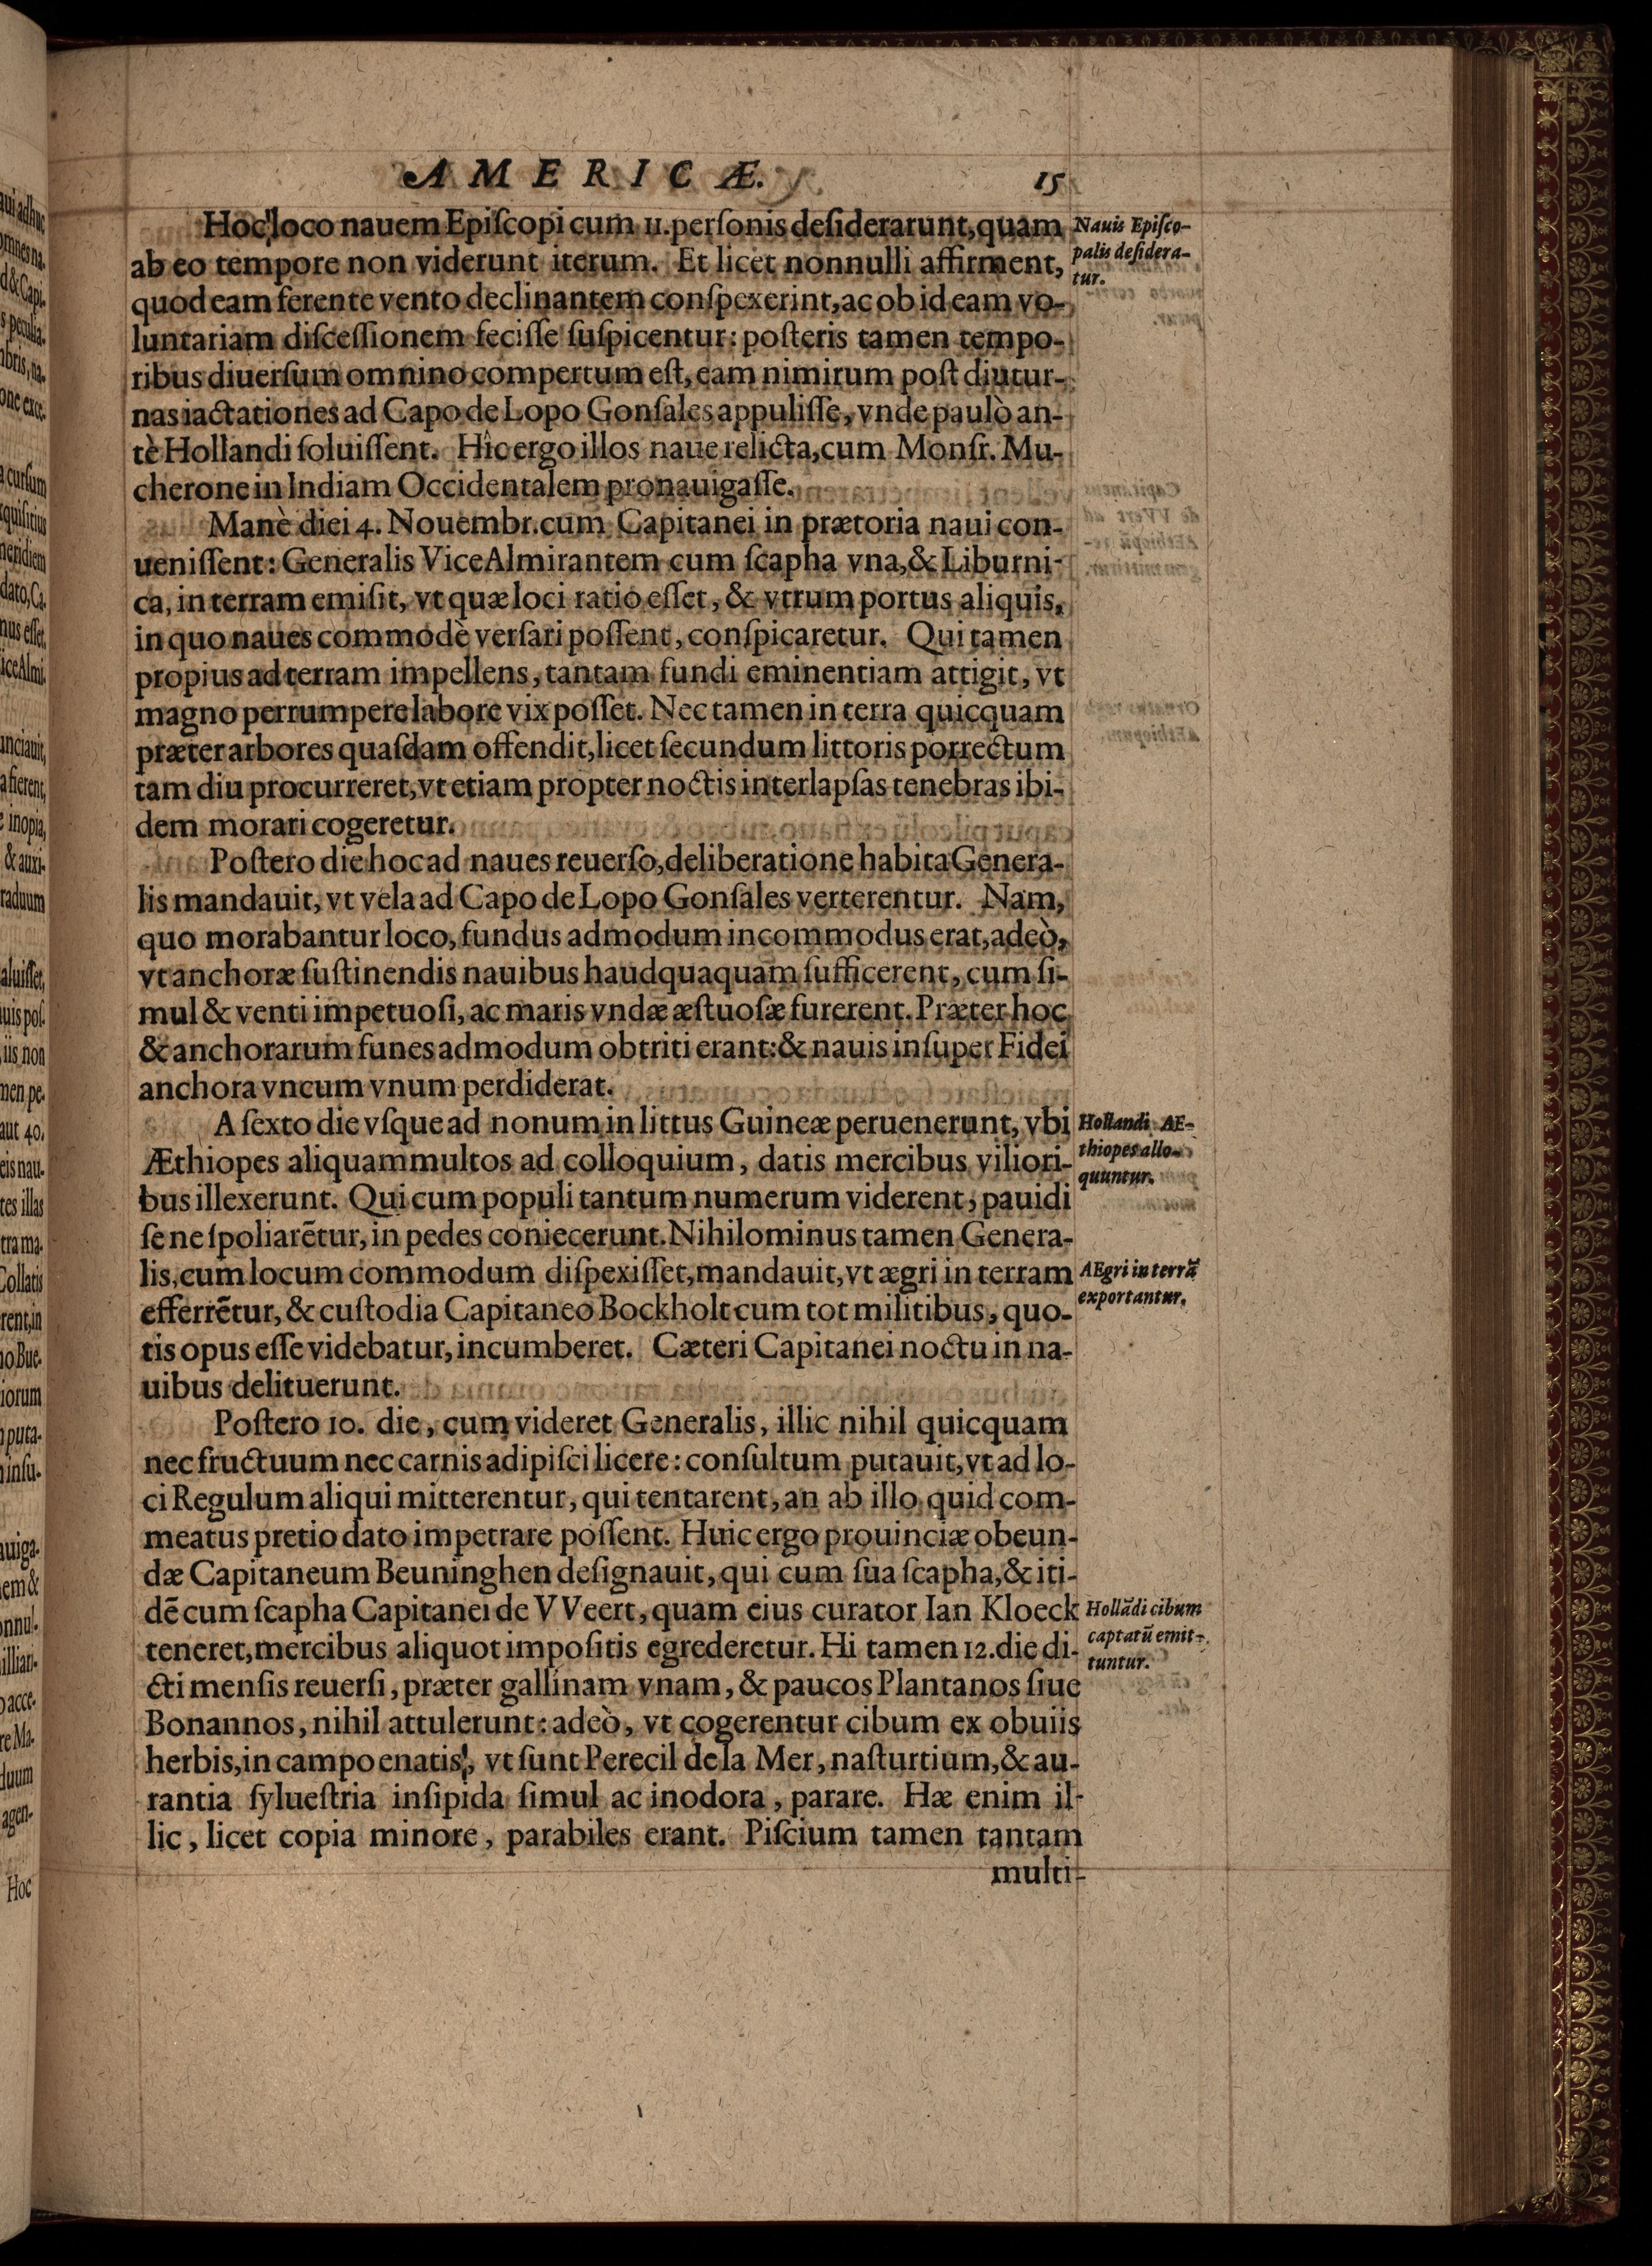 AMERICÆ. 15
Hoc loco nauem Epiſcopi cum 11. perſonis deſiderarunt, quam
ab eo tempore non viderunt iterum. Et licet nonnulli affirment,
quod eam ferente vento declinantem conſpexerint, ac ob id eam vo-
luntariam diſceſſionem feciſſe ſuſpicentur: poſteris tamen tempo-
ribus diuerſum omnino compertum eſt, eam nimirum poſt diutur-
nas iactationes ad Capo de Lopo Gonſales appuliſſe, vnde paulò an-
tè Hollandi ſoluiſſent. Hîc ergo illos naue relicta, cum Monſr. Mu-
cherone in Indiam Occidentalem pronauigaſſe.
Nauis Epiſco-
palis deſidera-
tur.
Manè diei 4. Nouembr. cum Capitanei in prætoria naui con-
ueniſſent: Generalis ViceAlmirantem cum ſcapha vna, & Liburni-
ca, in terram emiſit, vt quæ loci ratio eſſet, & vtrum portus aliquis,
in quo naues commodè verſari poſſent, conſpicaretur. Qui tamen
propius ad terram impellens, tantam fundi eminentiam attigit, vt
magno perrumpere labore vix poſſet. Nec tamen in terra quicquam
præter arbores quaſdam offendit, licet ſecundum littoris porrectum
tam diu procurreret, vt etiam propter noctis interlapſas tenebras ibi-
dem morari cogeretur.
Poſtero die hoc ad naues reuerſo, deliberatione habita Genera-
lis mandauit, vt vela ad Capo de Lopo Gonſales verterentur. Nam,
quo morabantur loco, fundus admodum incommodus erat, adeò,
vt anchoræ ſuſtinendis nauibus haudquaquam ſufficerent, cum ſi-
mul & venti impetuoſi, ac maris vndæ æſtuoſæ furerent. Præter hoc
& anchorarum funes admodum obtriti erant: & nauis inſuper Fidei
anchora vncum vnum perdiderat.
A ſexto die vſque ad nonum in littus Guineæ peruenerunt, vbi
Æthiopes aliquammultos ad colloquium, datis mercibus viliori-
bus illexerunt. Qui cum populi tantum numerum viderent, pauidi
ſe ne ſpoliarētur, in pedes coniecerunt. Nihilominus tamen Genera-
lis, cum locum commodum diſpexiſſet, mandauit, vt ægri in terram
efferrētur, & cuſtodia Capitaneo Bockholt cum tot militibus, quo-
tis opus eſſe videbatur, incumberet. Cæteri Capitanei noctu in na-
uibus delituerunt.
Hollandi AE-
thiopes allo-
quuntur.
AEgri in terrā
exportantur.
Poſtero 10. die, cum videret Generalis, illic nihil quicquam
nec fructuum nec carnis adipiſci licere: conſultum putauit, vt ad lo-
ci Regulum aliqui mitterentur, qui tentarent, an ab illo quid com-
meatus pretio dato impetrare poſſent. Huic ergo prouinciæ obeun-
dæ Capitaneum Beuninghen deſignauit, qui cum ſua ſcapha, & iti-
dē cum ſcapha Capitanei de VVeert, quam eius curator Ian Kloeck
teneret, mercibus aliquot impoſitis egrederetur. Hi tamen 12. die di-
cti menſis reuerſi, præter gallinam vnam, & paucos Plantanos ſiue
Bonannos, nihil attulerunt: adeò, vt cogerentur cibum ex obuiis
herbis, in campo enatis, vt ſunt Perecil de la Mer, naſturtium, & au-
rantia ſylueſtria inſipida ſimul ac inodora, parare. Hæ enim il-
lic, licet copia minore, parabiles erant. Piſcium tamen tantam
Hollādi cibum
captatū emit-
tuntur.
multi-